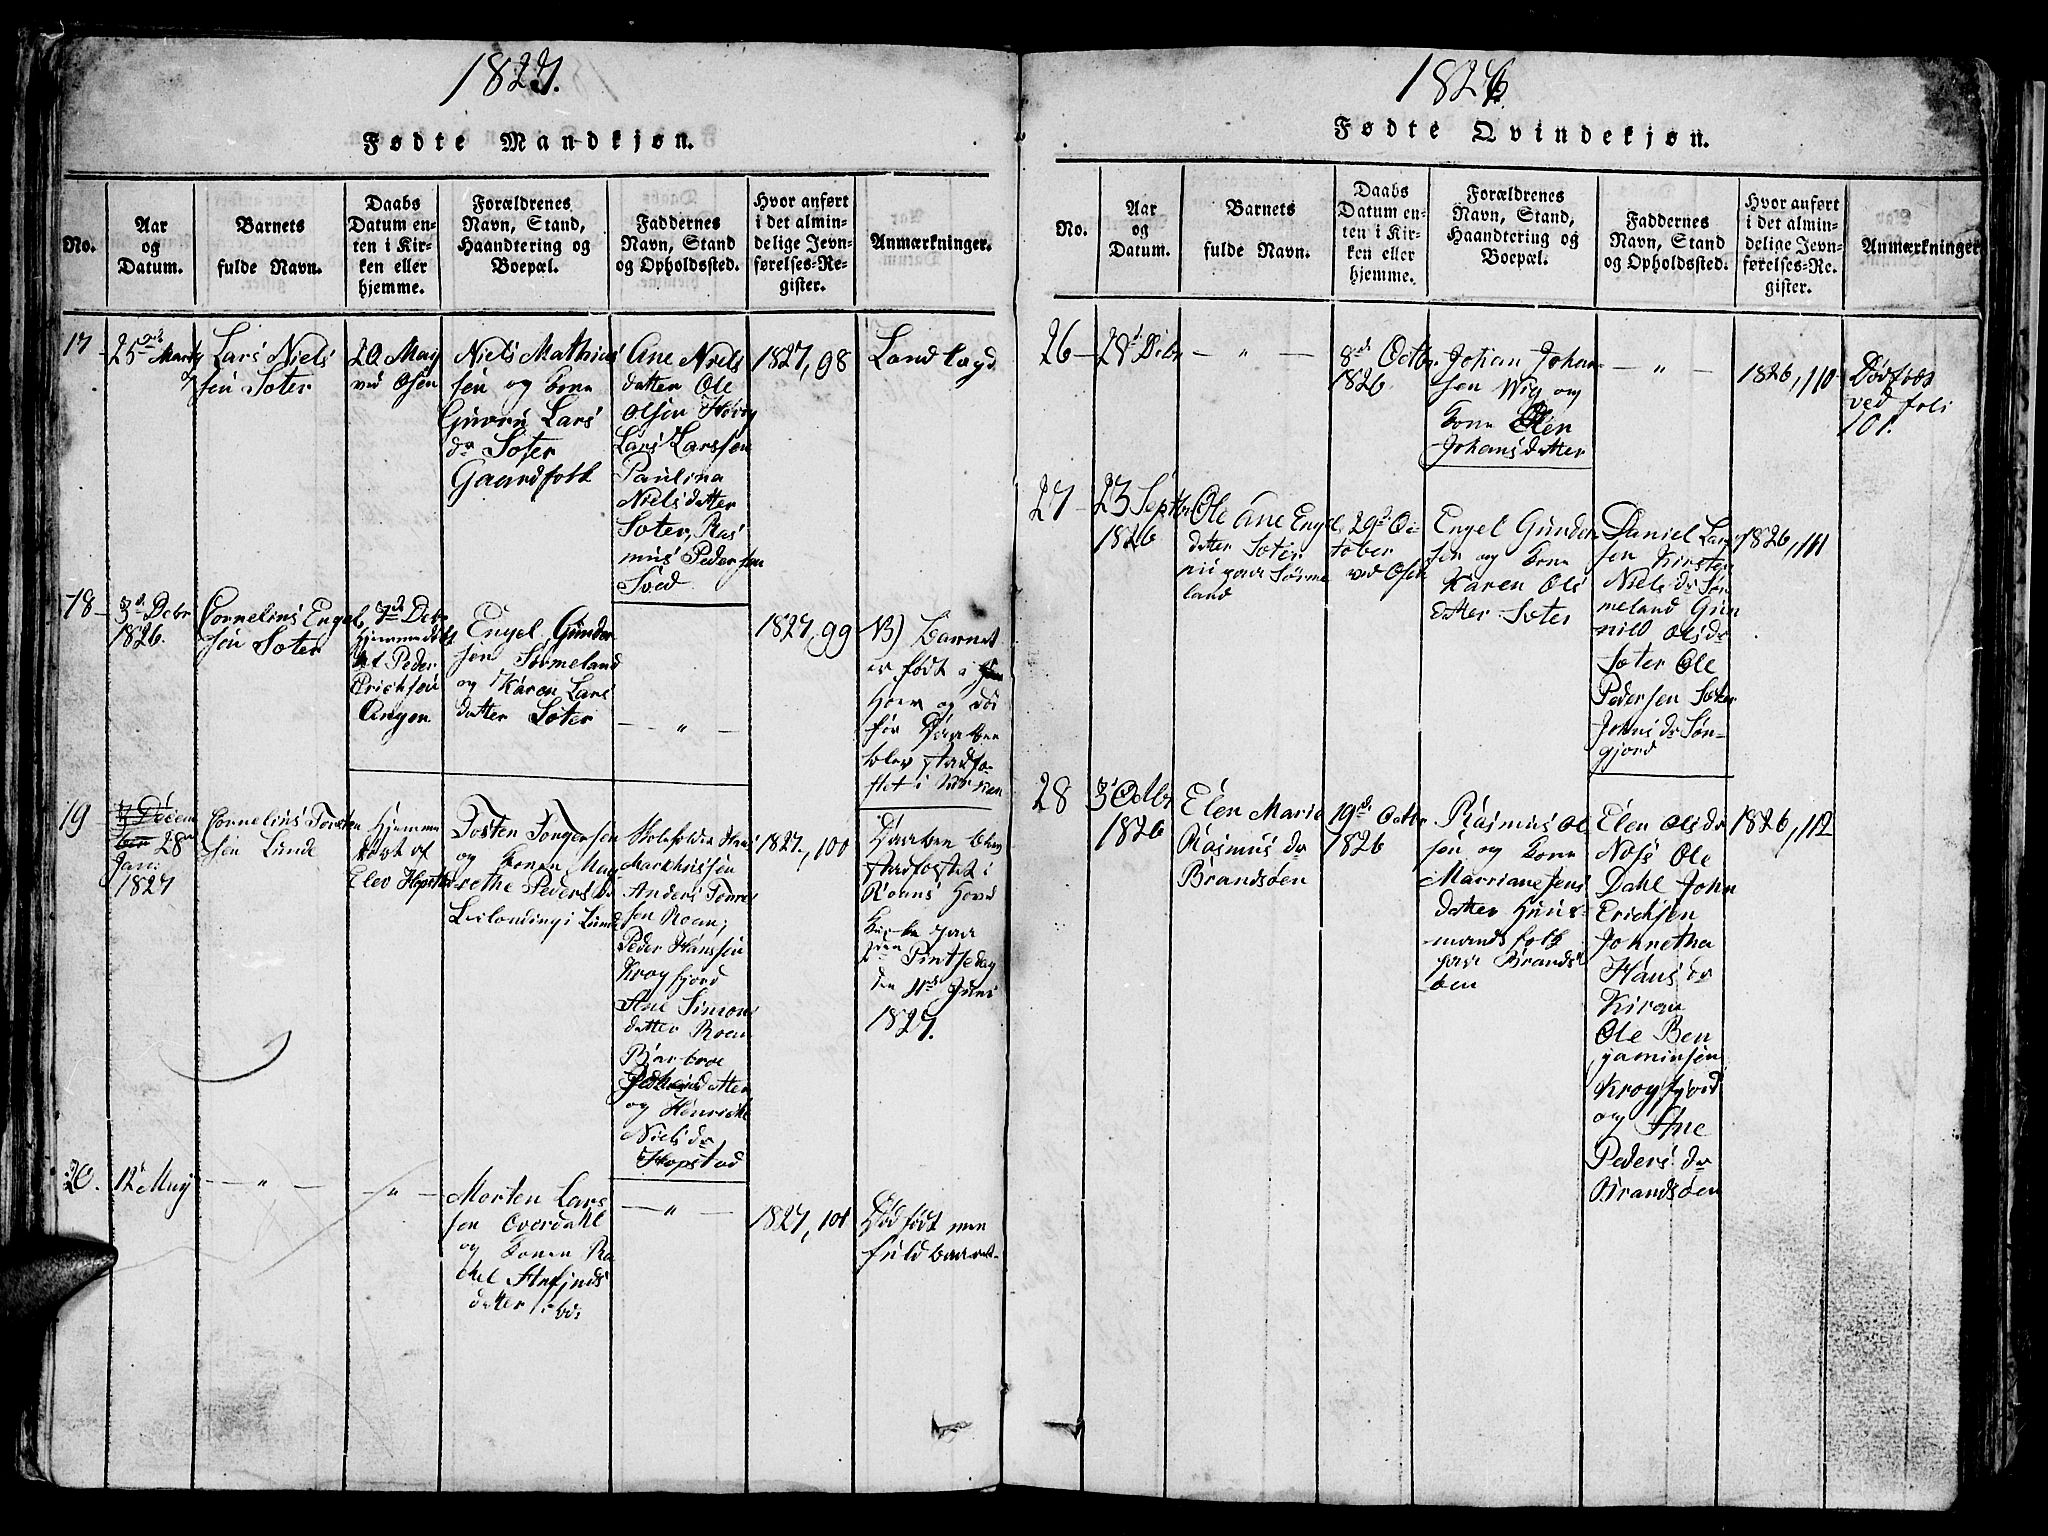 1827.
Fødte Mandkjøn.
No.
Aar
og
Datum.
Barnets
fulde Navn.
Daabs
Datum en-
ten i Kir-
ken eller
hjemme.
Forældrenes
Navn, Stand,
Haandtering og
Boepæl.
Faddernes
Navn, Stand
og Opholdssted.
Hvor anført
i det almin-
delige Jevn-
førelses-Re-
gister.
Anmærkninger.
17
25 Marts
Lars Niels
sen Soter
20 May
ved Osen
Niels Mathias
sen og Kone
Guru Lars
dr Soter
Gaardfolk
Ane Niels
datter Ole
Olsen Høvig
Lars Larssen
Paulina
Nielsdatter
Soter, Ras
mus Pedersen
Sved
1827, 98
Landlægd
18
3d Debr
1826.
Cornelius Engel
sen Soter
7de Debr
Hjemmedøbt
af Peder
Erichsen
Angen
Engel Gunder
sen Sørmeland
og Karen Lars
datter Soter
— " —
1827, 99
NB) Barnet
er født i
Hoer og død
før Daaben
blev stadfæ-
stet i Kirken
19
3 Decem
ber 28
Jani
1827
Cornelius Torsten
sen Lunde
Hjemme
døbt af
Elev Hopstad
Tosten Torgersen
og Konen Mag
rethe Peders dr
Leilending i Lunde
Skoleholder Hans
Markhussen
Anders Tørris
sen Roan,
Peder Hanssen
Krogfjord
Ane Simons
datter Roan
Barbroe
Pedersdatter
og Henricke
Niels dr
Hopstad
1827, 100
Daaben blev
stadfæstet i
Roans Hoved
Kirke paa
2den Pintsedag
den 4de Juni
1827.
20.
12t May
— " —
— " —
Morten Lars
sen Overdahl
og Konen Ra
chel Stafinds
datter ibd:
— " —
1827, 101
Dødfødt men
fuldbaaret
1826
Fødte Qvindekjøn.
No.
Aar
og
Datum.
Barnets
fulde Navn.
Daabs
Datum en-
ten i Kir-
ken eller
hjemme.
Forældrenes
Navn, Stand,
Haandtering og
Boepæl.
Faddernes
Navn, Stand
og Opholdssted.
Hvor anført
i det almin-
delige Jevn-
førelses-Re-
gister.
Anmærkninger
26
— " —
8de Octbr
1826
Johan Johan
sen Wig og
Kone Elen
Johansdatter
— " —
1826, 110
Dødføds
ved foli
101.
27
23 Septbr
1826
Ole Ane Engel
datter Soter
paa Sørme
land
29d Oc
tober
ved Osen
Engel Gunder
sen og Kone
Karen Ols
datter Soter
Daniel Lars
sen Kirsten
Niels dr Sør
meland Gun
nild Olsdr
Soter Ole
Pedersen Soter
Johns dr Søn-
gjord
1826, 111
28
3t Octbr
1826
Elen Maria
Rasmus dr
Brandsøen
19de Octbr
1826
Rasmus Ol
sen og Kone
Marriane Jens
datter Huus-
mands folk
paa Brands
øen
Elen Olsdr
Noss Ole
Dahl John
Erichsen
Johnetha
Hans dr
Kiran
Ole Ben
jaminsen
Krogfjord
og Ane
Peders dr
Brandsøen
1826, 112